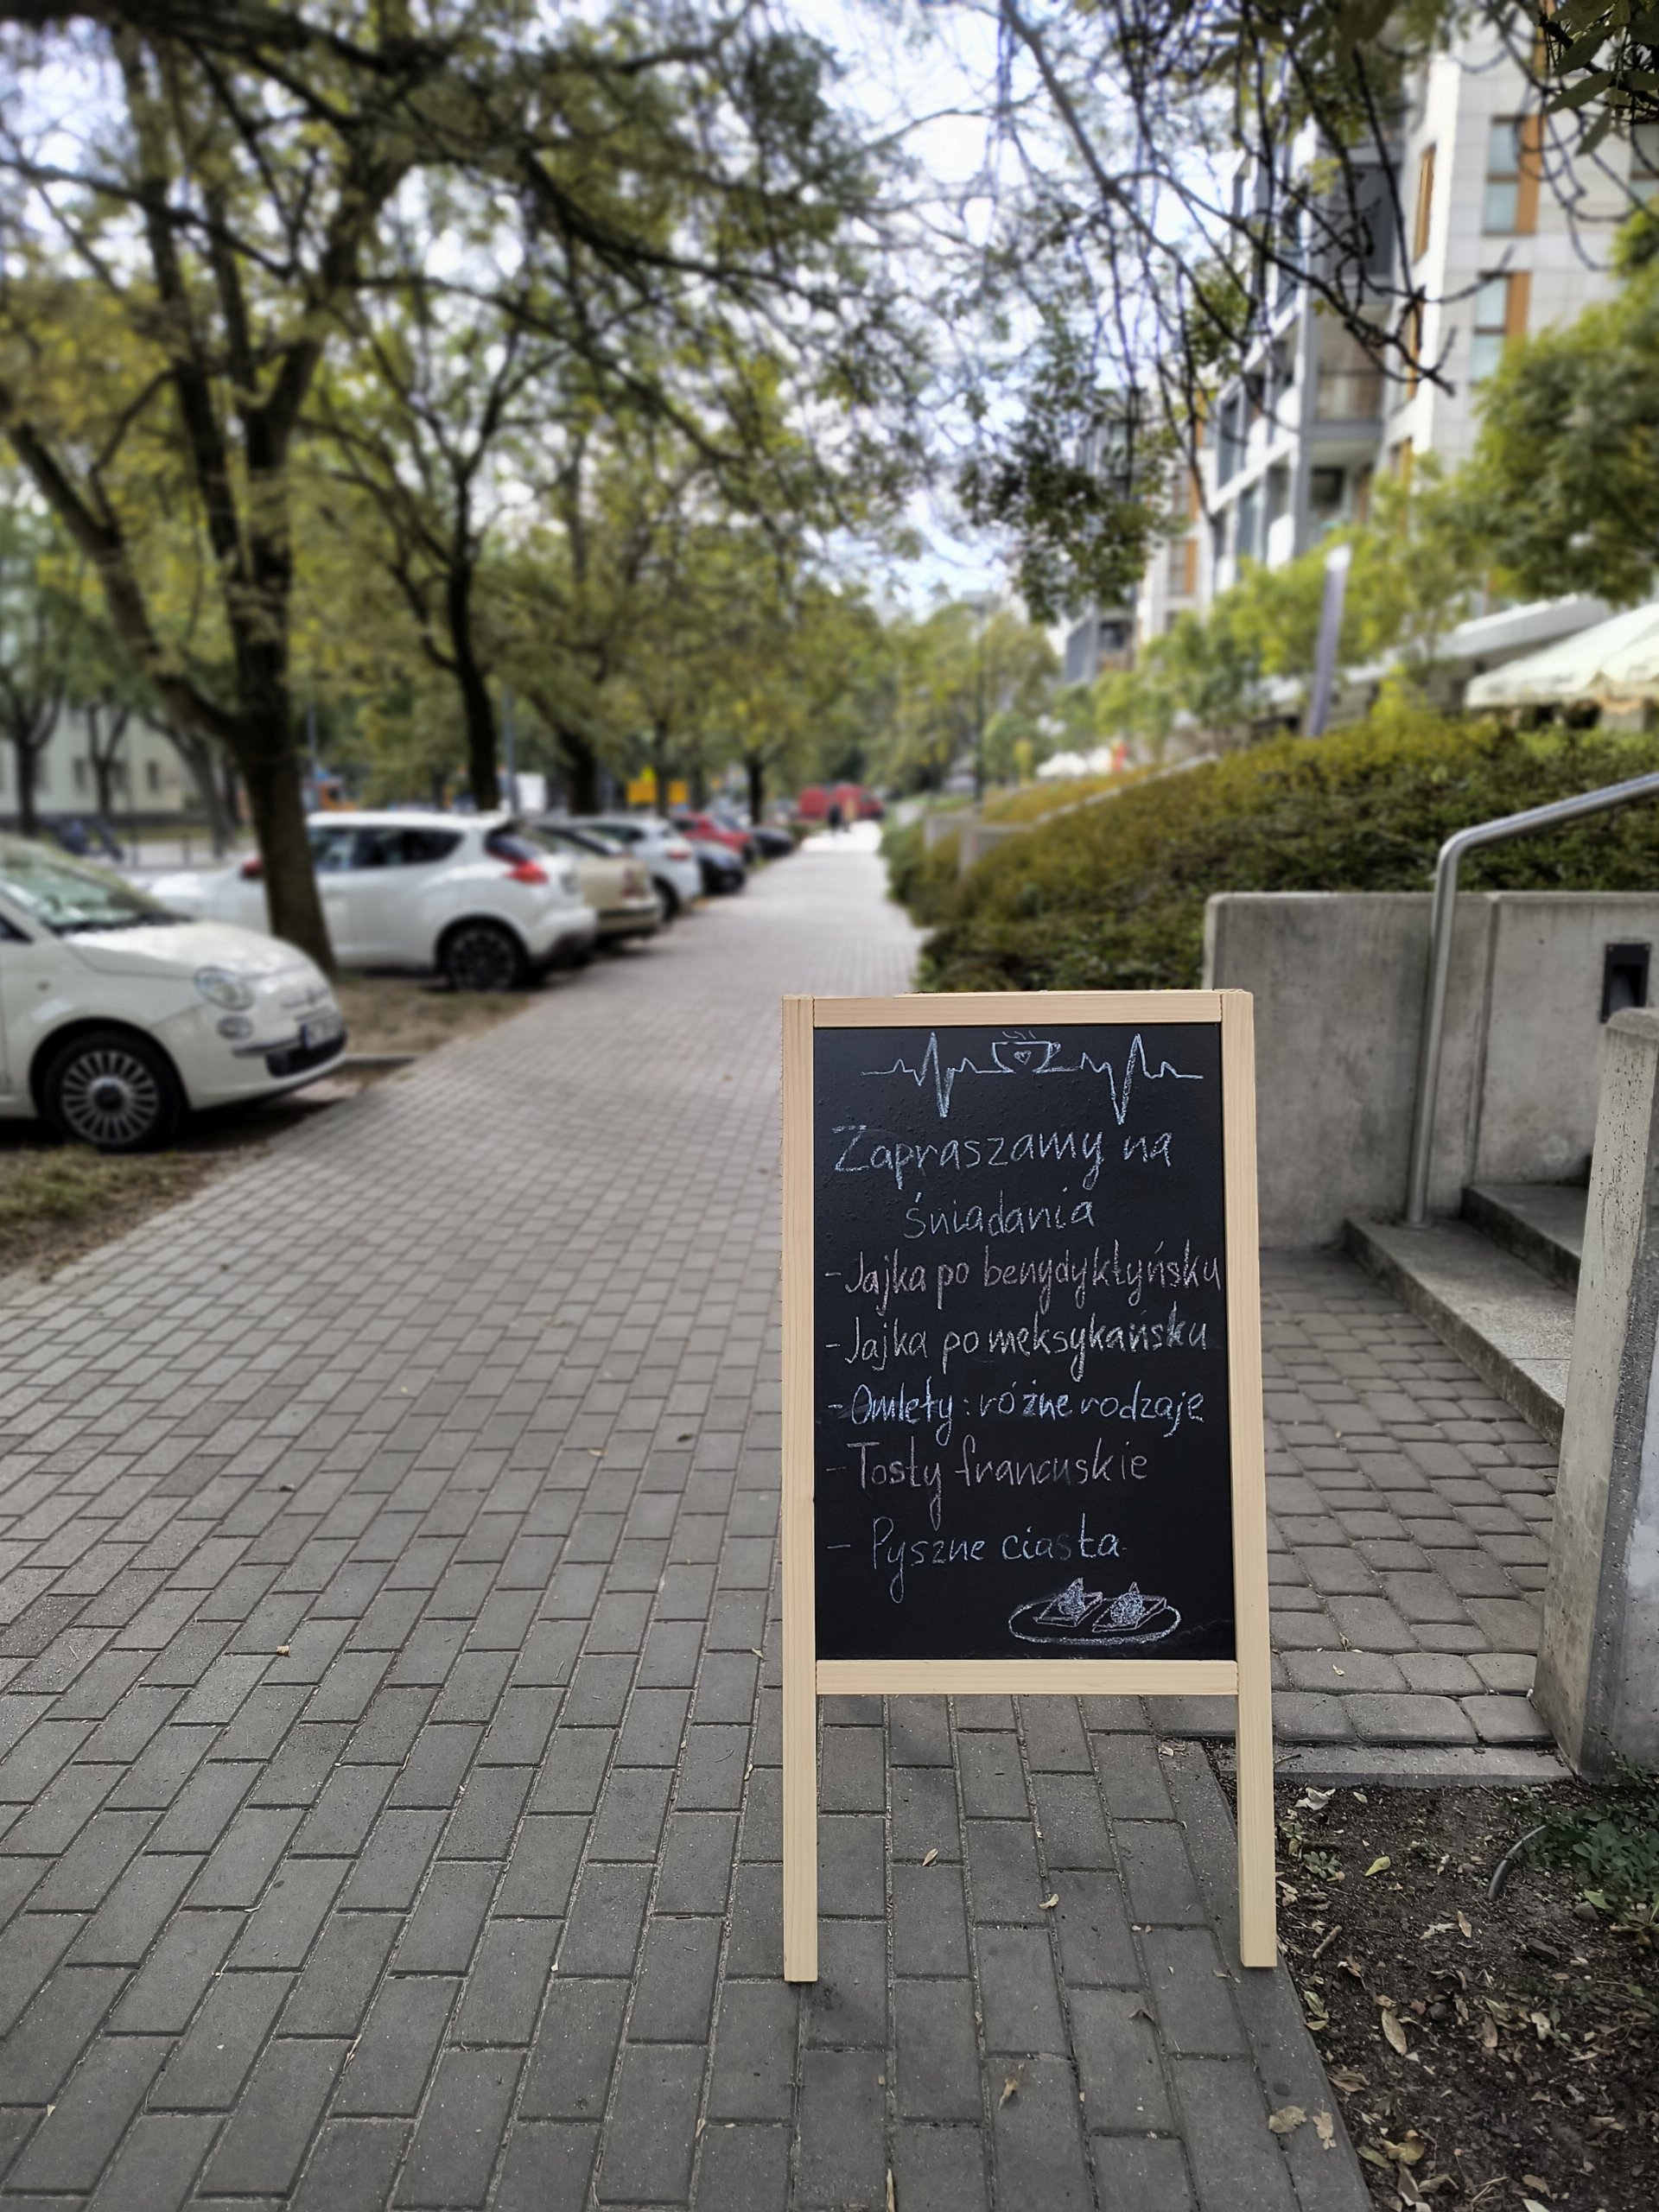 Zapraszamy na
śniadania
- Jajka po benydyktyńsku
- Jajka po meksykańsku
- Omlety: różne rodzaje
- Tosty francuskie
- Pyszne ciasta